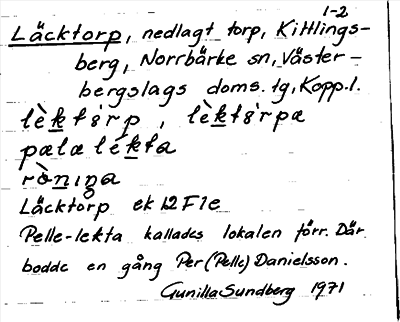 1-2
Läcktorp, nedlagt torp, Kittlings-
berg, Norrbärke sn, Väster-
bergslags doms. tg, Kopp. l.
lèktȯrp, lèktȯrpæ
pælæ lékta
ròniŋa
Läcktorp ek 12 F 1e
Pelle-lekta kallades lokalen förr. Där
bodde en gång Per (Pelle) Danielsson.
Gunilla Sundberg 1971